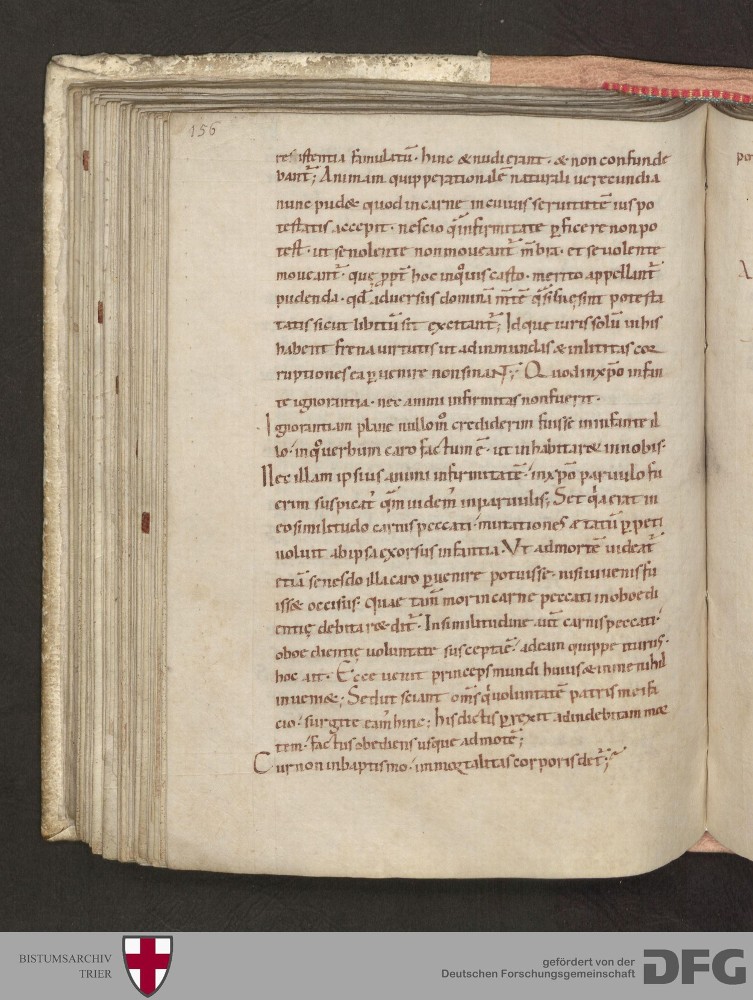 156
resistentia famulatū· hinc & nudi erant· & non confunde
bant̄; Animam quippe rationalē naturali uerecundia
nunc pud& quod in carne in cuius seruitutē ius po
testatis accepit· nescio q̄ infirmitate ꝑficere non po
test· ut se nolente non moueant̄ mēbra· et se uolente
moueant̄· quę ꝓpt̄ hoc in quouis casto· merito appellant̄
pudenda· qd̄ aduersus dominā mt̄ē q̄si suę sint potesta
tis sicut libitū sit excitant̄; Idque iuris solū in his
habent frena uirtutis ut ad inmundas & inlicitas cor
ruptiones ea ꝑuenire non sinant; Quod in xp̄o infan
te ignorantia· nec animi infirmitas non fuerit·
Ignorantiam plane nullo m̊ crediderim fuisse in infante il
lo· in quo uerbum caro factum ē· ut inhabitar& in nobis·
Nec illam ipsius animi infirmitatē· in xp̄o paruulo fu
erim suspicat̄ quā uidem̄ in paruulis; Set qͥa erat in
eo similitudo carnis peccati· mutationes ætatū ꝑpeti
uoluit ab ipsa exorsus infantia· Vt ad mortē uideat̄
etiā senescendo illa caro ꝑuenire potuisse· nisi iuuenis fu
iss& occisus· Quae tam̄ mors in carne peccati inoboedi
entię debita redd̄it̄· In similitudine aut̄ carnis peccati·
oboedientię uoluntate suscepta ē· ad eam quippe iturus·
hoc ait· Ecce uenit princeps mundi huius & in me nihil
inueni&; Sed ut sciant om̄s qͥ uoluntatē patris mei fa
cio· surgite eam̄ hinc; his dictis ꝑrexit ad indebitam mor
tem· factus obediens usque ad mortē;
Cur non in baptismo· inmortalitas corporis det̄;
BISTUMSARCHIV
TRIER
gefördert von der
Deutschen Forschungsgemeinschaft
DFG